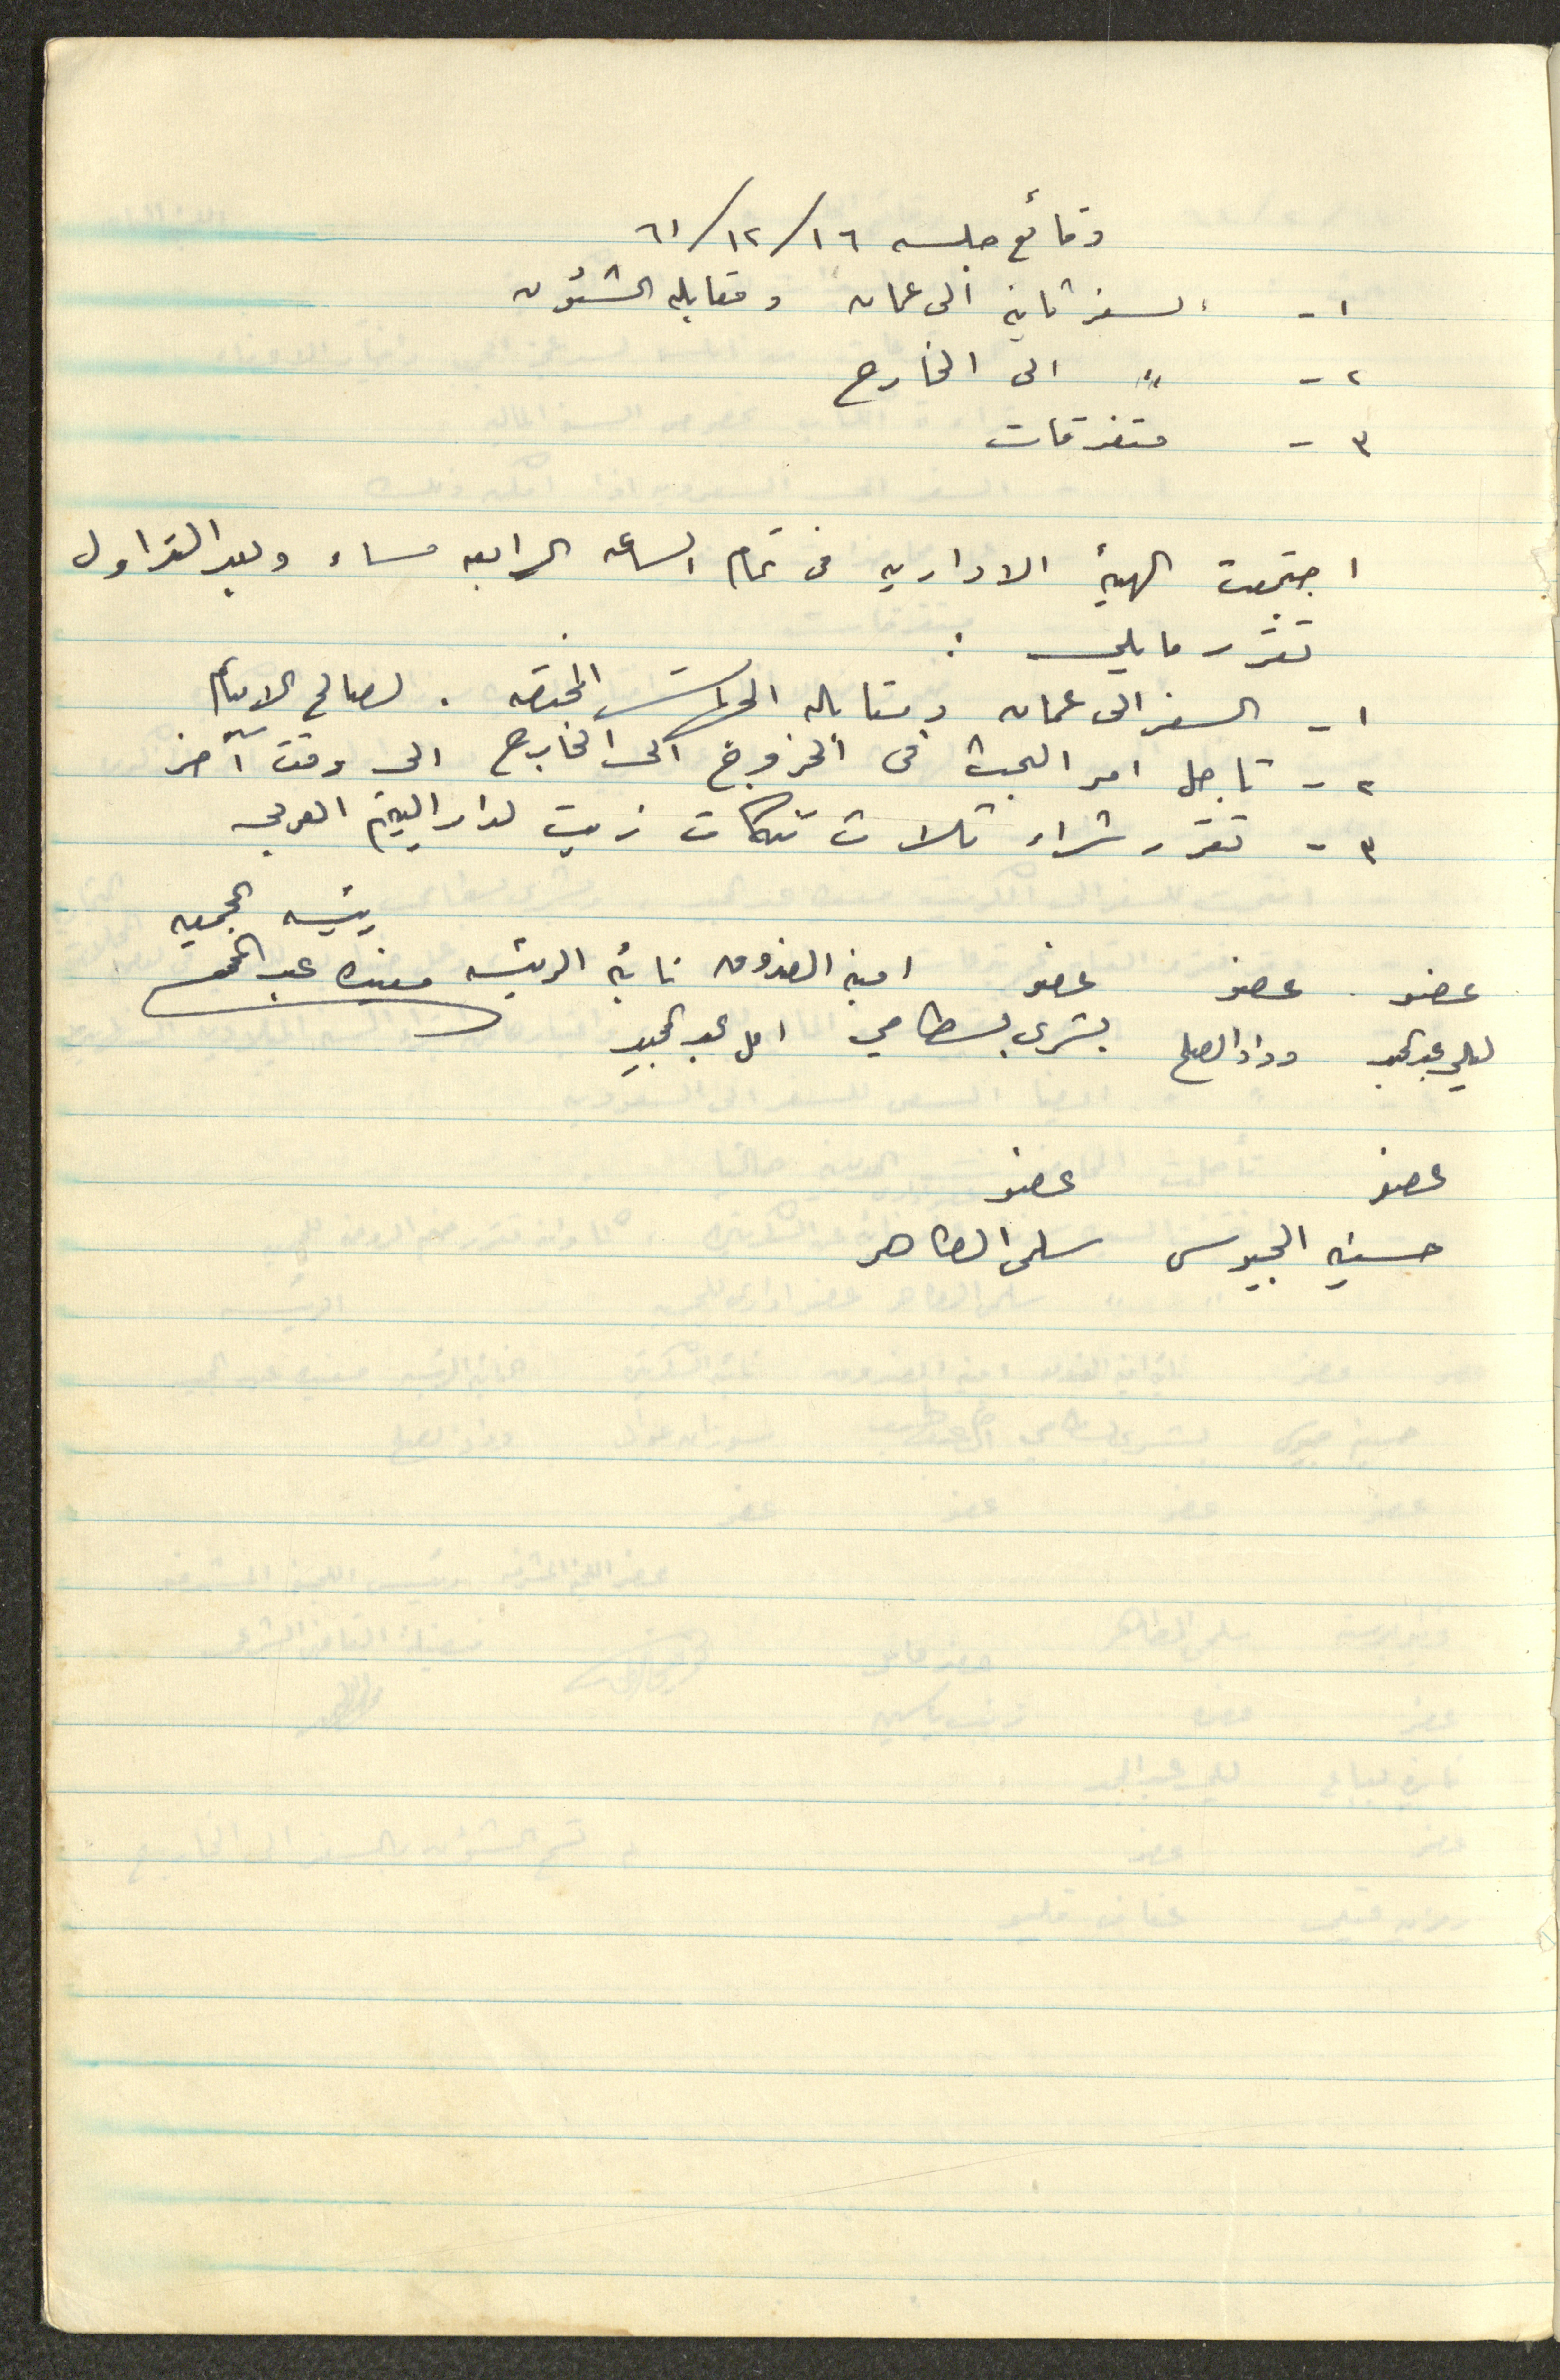 وقائع جلسه ١٦/١٢/٦١
١- السفر ثانيه الى عمان ومقابله الشؤون
٢- " الى الخارج
٣- متفرقات
اجتمعت الهيئه الاداريه فى تمام الساعه الرابعه مساء وبعد التداول
تقرر مايلي :
١- السفر الى عمان ومقابله المختصه . لصالح الايتام
٢- تاجل امر البحث فى الخروج الى الخارج الى وقت آخر
٣- تقرر شراء ثلاث تنكات زيت لدار اليتيم العربي
رئيسه الجمعيه
عضو عضو عضو امينه الصندوق نائبه الرئيسه مفيده عبد المجيد
ليلى عبد المجيد وداد الصلح بشرى بسطامي امل عبد المجيد
عضو عضو
حسنيه الجيوسى سلمى الطاهر